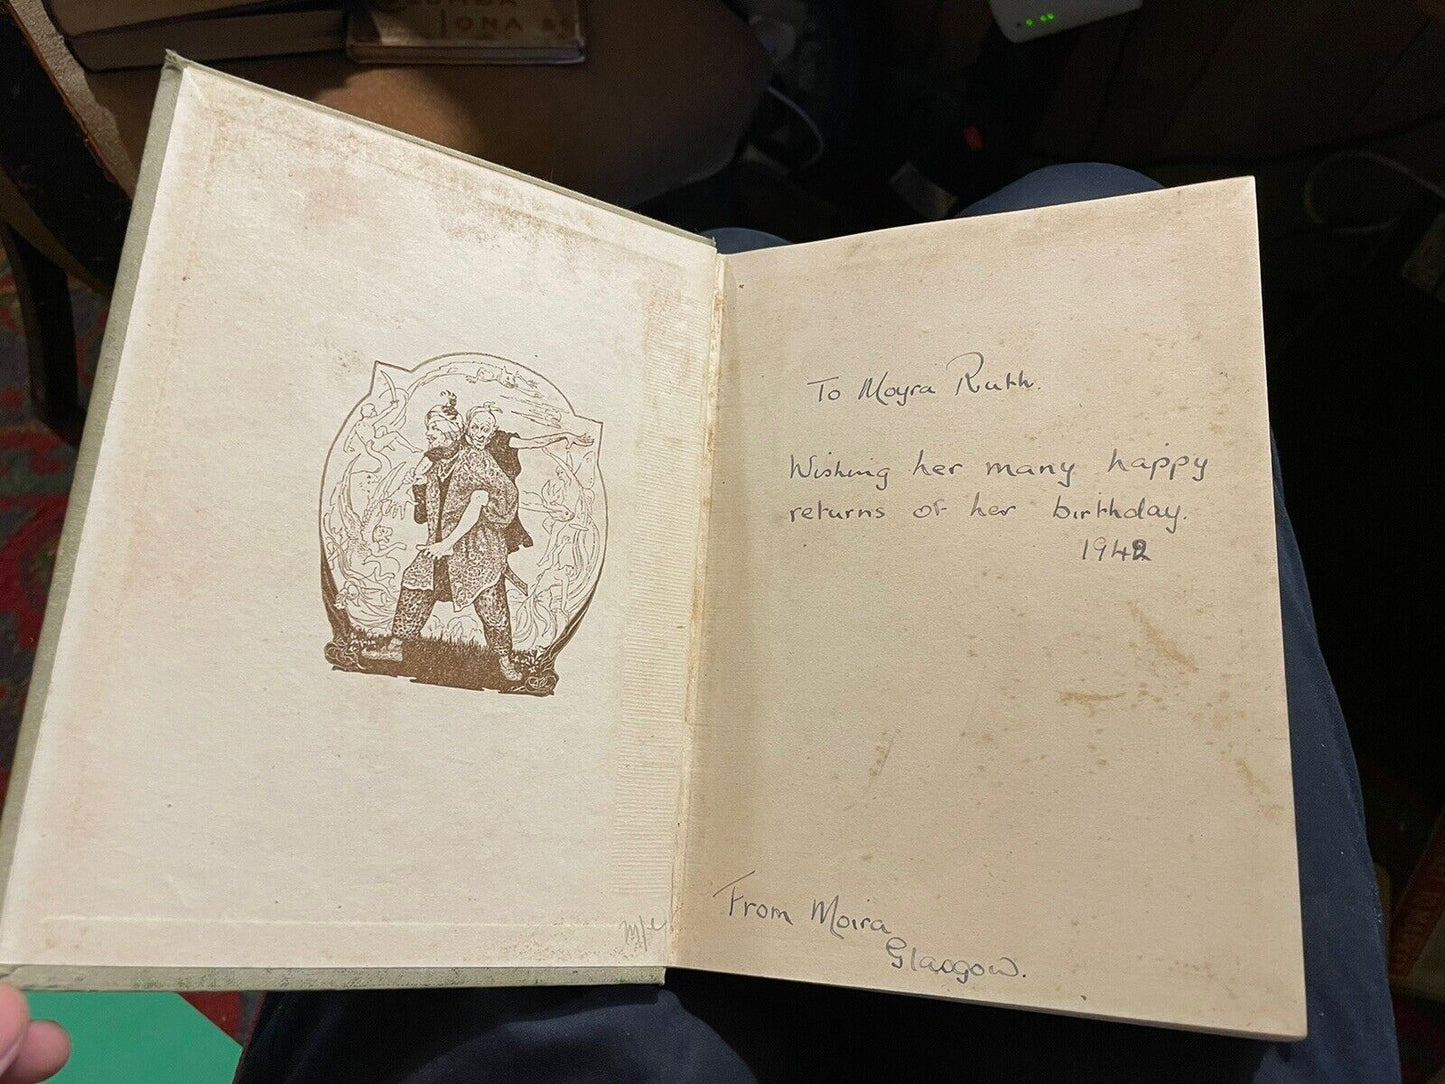 IONA
To Moyra Ruth.
Wishing her many happy
returns of her birthday.
1942
From Moira
Glasgow.